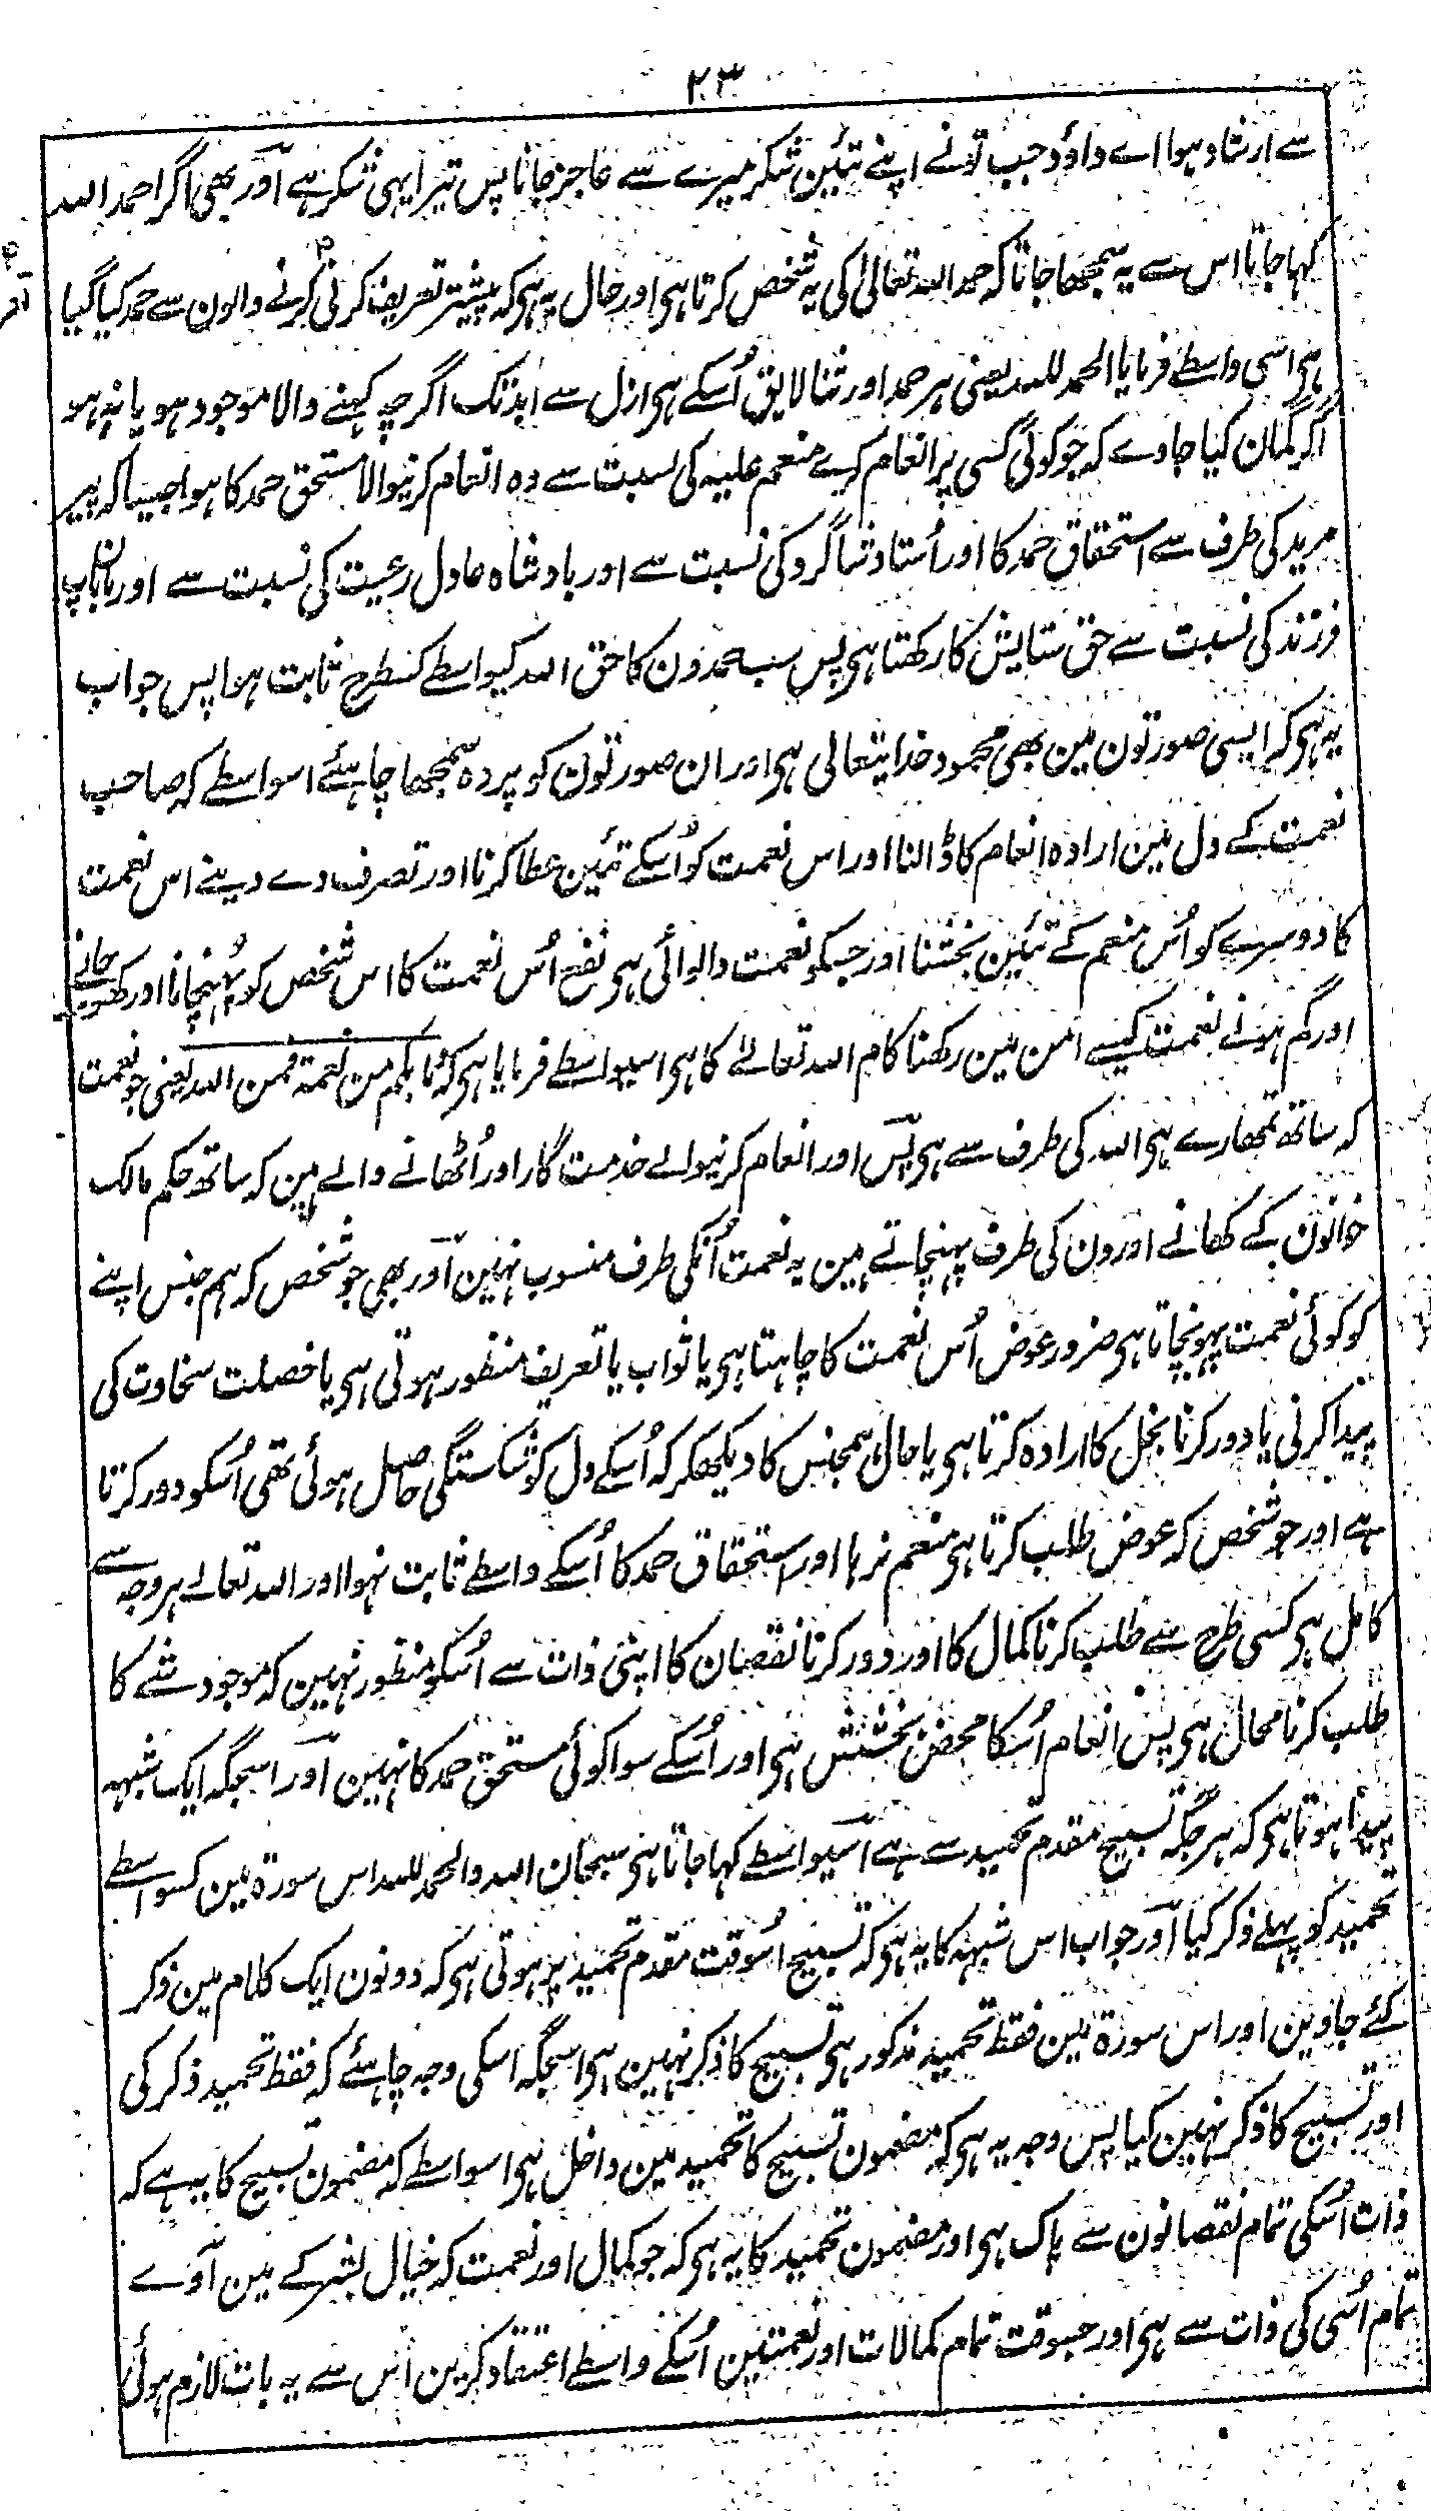 ۲۳
سے ارشاد ہوا اے داؤد جب تونے اپنے تئین شکر میرے سے عاجز جانا پس تیرا یہی شکر ہے اور بھی اگر احمد اللہ
کہا جاتا اس سے یہ سمجھا جاتا کہ حمد اللہ تعالیٰ کی یہ شخص کرتا ہی اور حال یہ ہی کہ پیشتر تعریف کرنی کرنے والون سے حمد کیا گیا
ہی اسی واسطے فرمایا الحمد للہ یعنی ہر حمد اور ثنا لایق اُسکے ہی ازل سے ابد تک اگرچہ کہنے والا موجود ہو یا نہ ہو
اگر گمان کیا جاوے کہ جو کوئی کسی پر انعام کرے منعم علیہ کی نسبت سے وہ انعام کرنیوالا مستحق حمد کا ہوا جیسا کہ پیر
مرید کی طرف سے استحقاق حمد کا اور اُستاد شاگرد کی نسبت سے اور بادشاہ عادل رعیت کی نسبت سے اور ما باپ
فرزند کی نسبت سے حق ستایش کا رکھتا ہی پس سب حمدون کا حق اللہ کیواسطے کسطرح ثابت ہوا پس جواب
یہ ہی کہ ایسی صورتون مین بھی محمود خدایتعالی ہی اور ان صورتون کو پردہ سمجھا چاہئے اسواسطے کہ صاحب
نعمت کے دل مین ارادہ انعام کا ڈالنا اور اس نعمت کو اُسکے تئین عطا کرنا اور تصرف دے دینے اس نعمت
کا دوسرے کو اُس منعم کے تئین بخشنا اور جسکو نعمت دالوائی ہی نفع اُس نعمت کا اس شخص کو پُہنچانا اور کھوئے جانے
اور گم ہونے نعمت کیسے امن مین رکھنا کام اللہ تعالے کا ہی اسیواسطے فرمایا ہی کہ ما بکم من نعمة فمن اللہ یعنی جو نعمت
کہ ساتھ تمھارے ہی اللہ کی طرف سے ہی پس اور انعام کرنیوالے خدمت گار اور اُٹھانے والے ہین کہ ساتھ حکم مالک
خوانون کے کھانے اورون کی طرف پہنچاتے ہین یہ نعمت اُنکی طرف منسوب نہین اور بھی جو شخص کہ ہم جنس اپنے
کو کوئی نعمت پہونچاتا ہی ضرور عوض اُس نعمت کا چاہتا ہی یا ثواب یا تعریف منظور ہوتی ہی یا خصلت سخاوت کی
پیدا کرنی یا دور کرنا بخل کا ارادہ کرتا ہی یا حال ہمجنس کا دیکھکر کہ اُسکے دل کو شکستگی حاصل ہوئی تھی اُسکو دور کرتا
ہے اور جو شخص کہ عوض طلب کرتا ہی منعم نرہا اور استحقاق حمد کا اُسکے واسطے ثابت نہوا اور اللہ تعالے ہر وجہ سے
کامل ہی کسی طرح سے طلب کرنا کمال کا اور دور کرنا نقصان کا اپنی ذات سے اُسکو منظور نہین کہ موجود شے کا
طلب کرنا محال ہی پس انعام اُسکا محض بخشش ہی اور اُسکے سوا کوئی مستحق حمد کا نہین اور اسجگہ ایک شبہہ
پیدا ہوتا ہی کہ ہر جگہ تسبیح مقدم تحمید سے ہے اسیواسطے کہا جاتا ہی سبحان اللہ والحمد للہ اس سورة مین کسواسطے
تحمید کو پہلے ذکر کیا اور جواب اس شبہہ کا یہ ہی کہ تسبیح اُسوقت مقدم تحمید پر ہوتی ہی کہ دونون ایک کلام مین ذکر
کئے جاوین اور اس سورة مین فقط تحمید مذکور ہی تسبیح کا ذکر نہین ہی اسجگہ اسکی وجہ چاہئے کہ فقط تحمید ذکر کی
اور تسبیح کا ذکر نہین کیا پس وجہ یہ ہی کہ مضمون تسبیح کا تحمید مین داخل ہی اسواسطے کہ مضمون تسبیح کا یہ ہے کہ
ذات اُسکی تمام نقصانون سے پاک ہی اور مضمون تحمید کا یہ ہی کہ جو کمال اور نعمت کہ خیال بشر کے مین آوے
تمام اُسی کی ذات سے ہی اور جسوقت تمام کمالات اور نعمتین اُسکے واسطے اعتقاد کرین اُس سے یہ بات لازم ہوئی